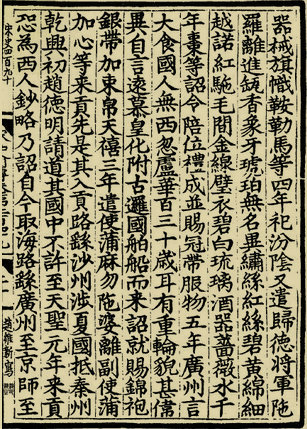 器械旗幟鞍勒馬等四年祀汾陰又遣歸德將軍陁
羅離進缻香象牙琥珀無名異繡絲紅絲碧黃綿細
越諾紅駞毛間金線壁衣碧白琉璃酒器薔薇水千
年棗等詔令陪位禮成並賜冠帶服物五年廣州言
大食國人無西忽盧華百三十歲耳有重輪貌甚偉
異自言遠慕皇化附古邏國舶船而來詔就賜錦袍
銀帶加束帛天禧三年遣使蒲麻勿陁婆離副使蒲
加心等來貢先是其入貢路繇沙州涉夏國抵秦州
乾興初趙德明請道其國中不許至天聖元年來貢
恐為西人鈔略乃詔自今取海路繇廣州至京師至
宋史四百九十